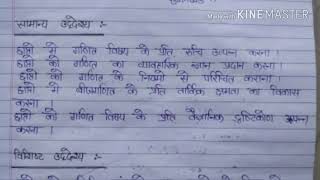 Made with KINEMASTER
सामान्य उद्देश्य :-
छात्रों में गणित विषय के प्रति रुचि उत्पन्न करना ।
छात्रों को गणित का व्यवहारिक ज्ञान प्रदान करना ।
छात्रों को गणित के नियमों से परिचित कराना ।
छात्रों में बीजगणित के प्रति तार्किक क्षमता का विकास
करना ।
छात्रों को गणित विषय के प्रति वैज्ञानिक दृष्टिकोण उत्पन्न
करना ।
विशिष्ट उद्देश्य :-